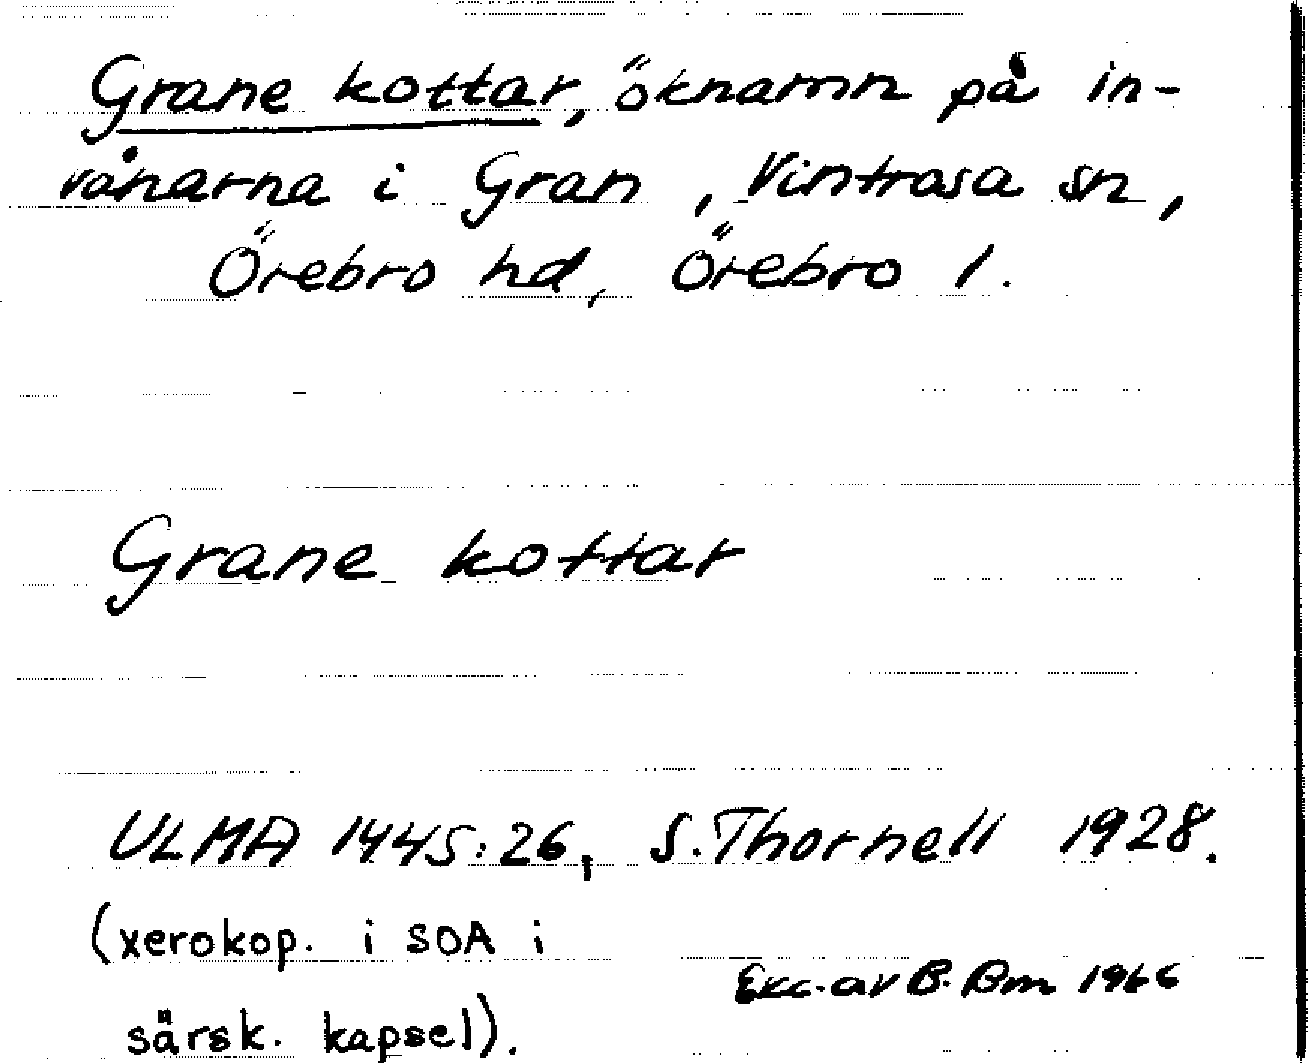 Grane kottar, öknamn på in-
vånarna i Gran, Vintrosa sn,
Örebro hd, Örebro l.
Grane kottar
ULMA 1445:26, S. Thornell 1928.
(xerokop. i SOA i
särsk. kapsel).
Exc. av B. Bm 1966